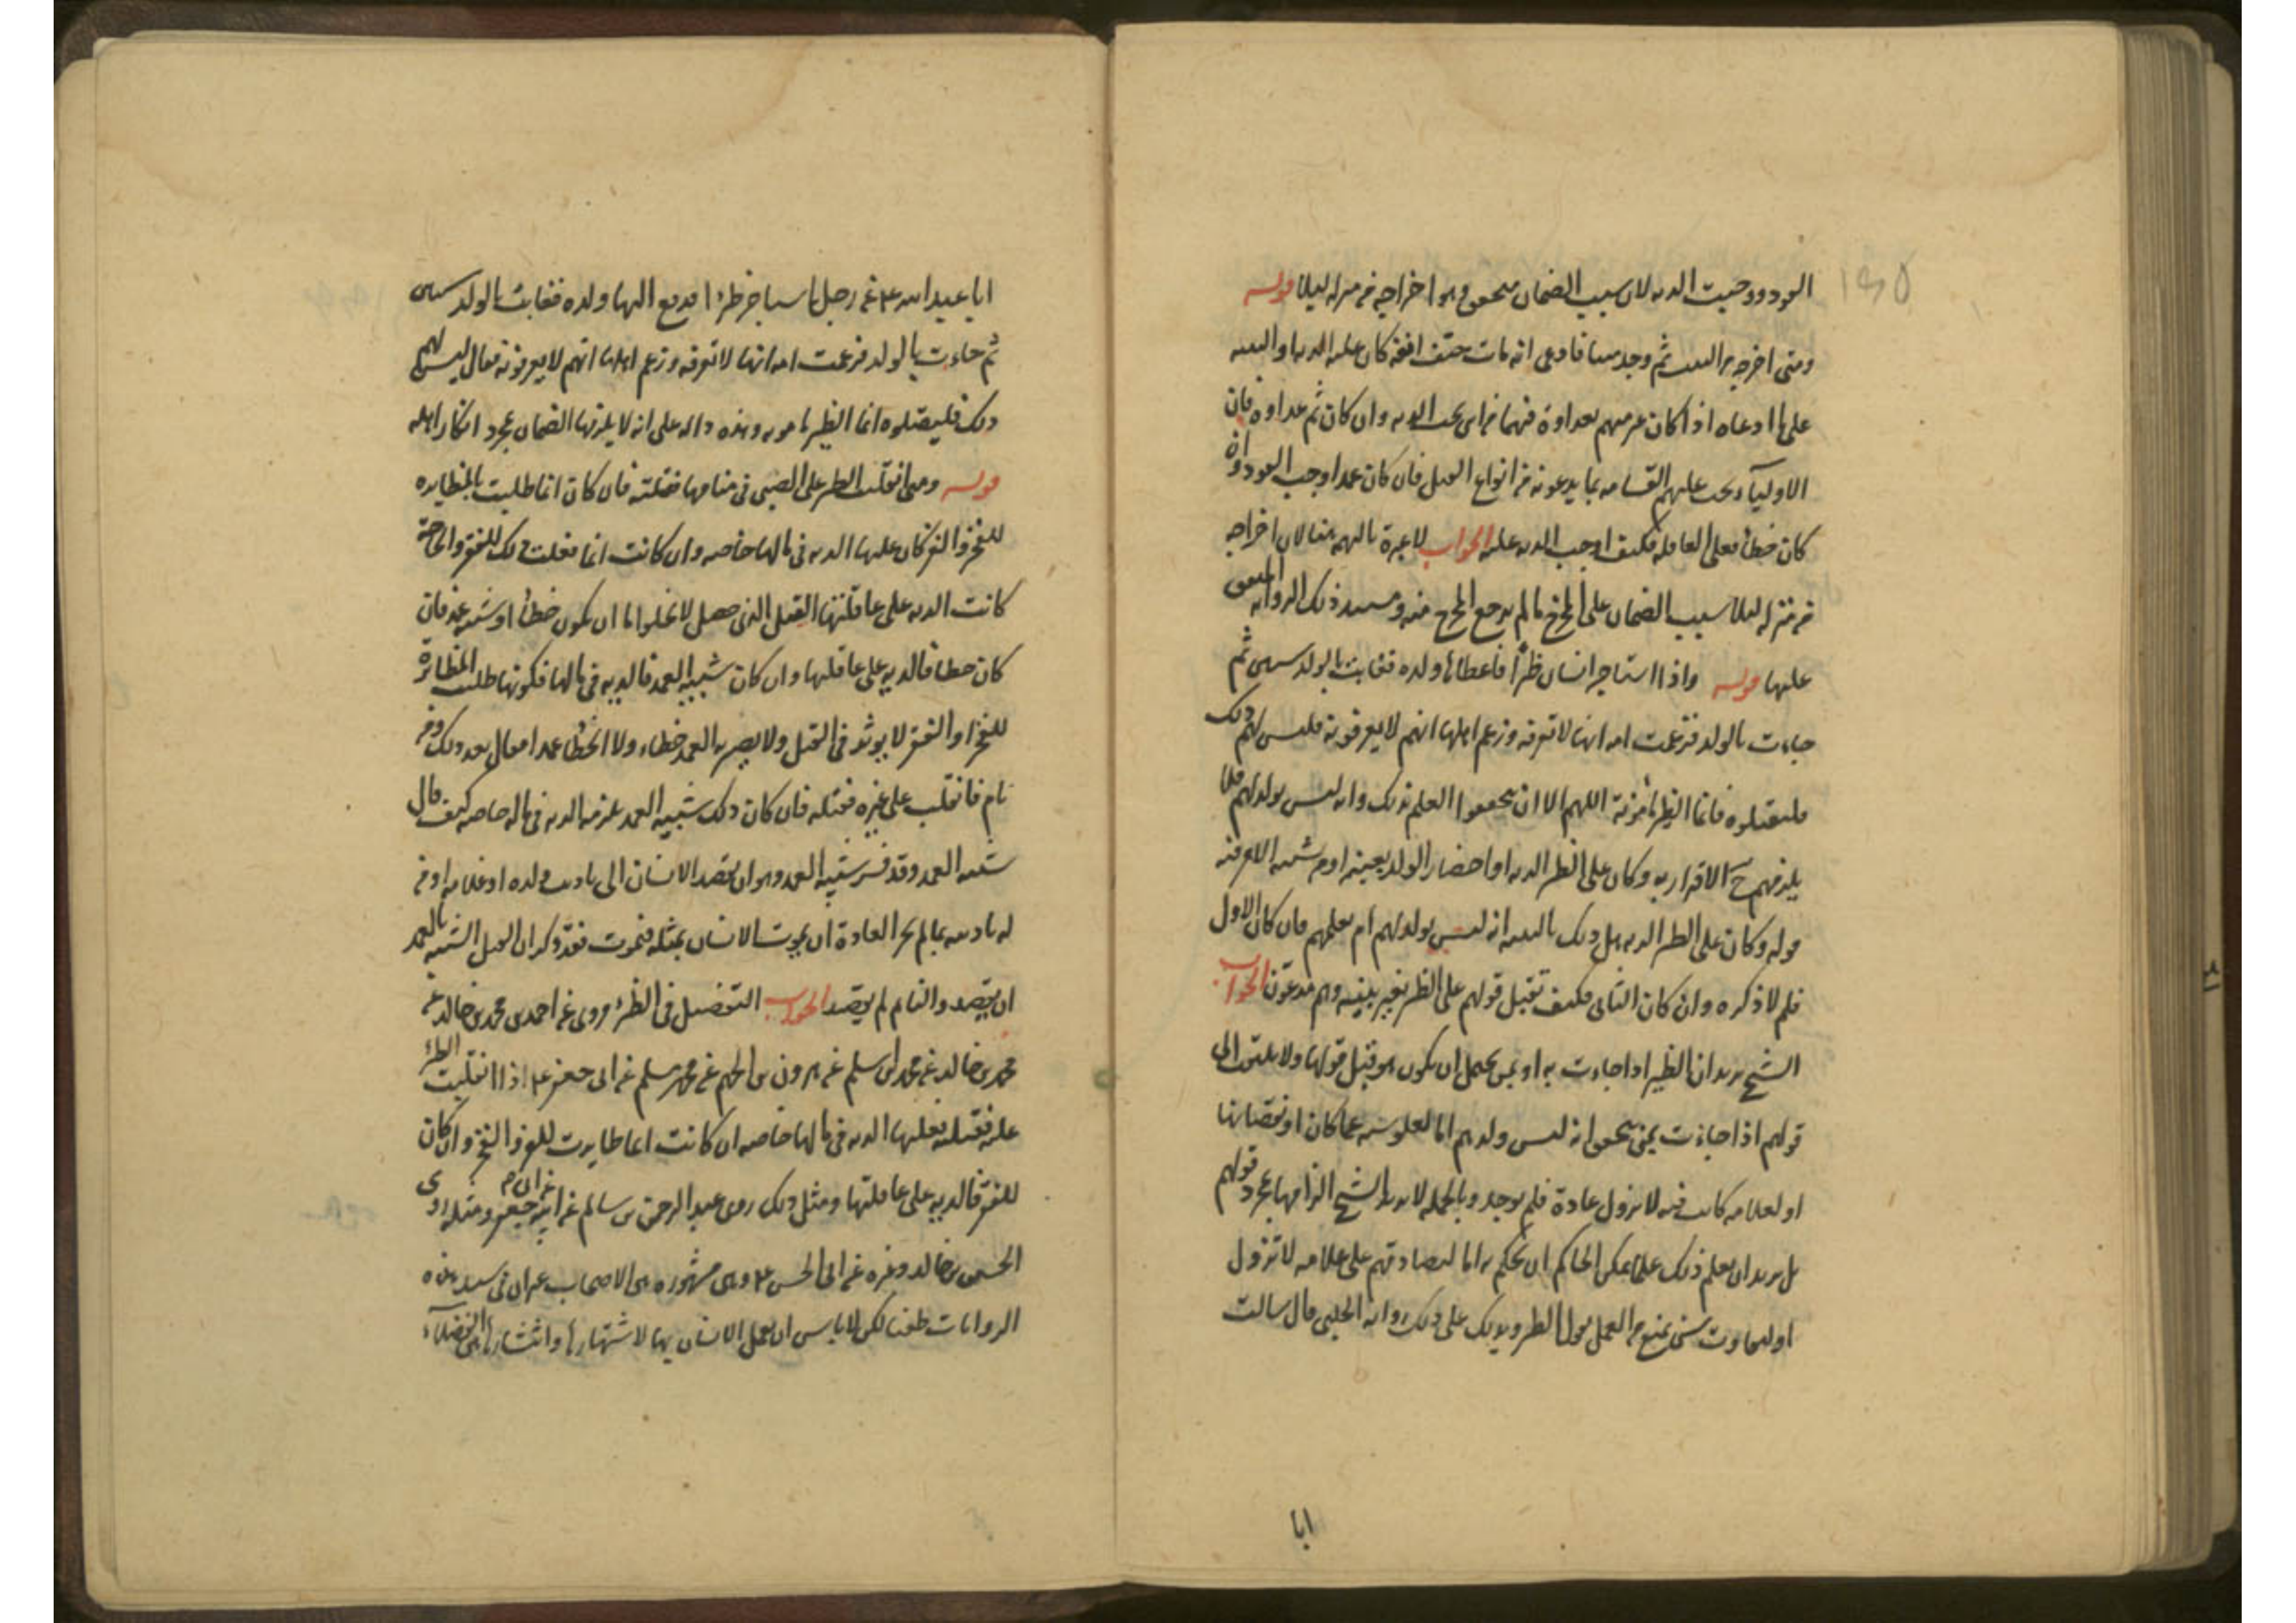 القود ووجبت الديه لان سبب الضمان متحقق وهو اخراجه من منزله ليلا قوله
ومتى اخرجه من البيت ثم وجد ميتا فادعى انه مات حتف انفه كان عليه الديه او البينه
على ما ادعاه اذا كان غير متهم بعداوة فيهما من اين تجب الديه وان كان ثم عداوة فان
الاوليآء تجب عليهم القسامه بما يدعونه من انواع القتل فان كان عمدا وجب القود وان
كان خطأ فعلى العاقله فكيف اوجب الديه عليه الجواب لا عبرة بالتهم هنا لان اخراجه
من منزله ليلا سبب الضمان على المخرج ما لم يرجع المخرج منه ومستند ذلك الرواية المتفق
عليها قوله واذا استاجر انسان ظئرا فاعطاها ولده فغابت بالولد سنين ثم
جاءت بالولد فزعمت امه انها لا تعرفه وزعم اهلها انهم لا يعرفونه فليس لهم ذلك
فليقبلوه فانما الظئر مأمونة اللهم الا ان يتحققوا العلم بذلك وانه ليس بولدهم فلا
يلزمهم ح الاقرار به وكان على الظئر الديه او احضار الولد بعينه او من يشبه الامر فيه
قوله وكان على الظئر الديه هل ذلك بالبينه انه ليس بولدهم ام بعلمهم فان كان الاول
فلم لا ذكره وان كان الثاني فكيف تقبل قولهم على الظئر بغير بينه وهم مدعون الجواب
الشيخ يريد ان الظئر اذا جاءت به او بمن يحتمل ان يكون هو قبل قولها ولا يلتفت الى
قولهم اذا جاءت بمن يتحقق انه ليس ولدهم اما لعلو سنه عما كان او نقصانها
او لعلامه كانت فيه لا تزول عادة فلم يوجد وبالجمله لا يريد الشيخ الزامها بمجرد قولهم
بل يريد ان يعلم ذلك علما يمكن الحاكم ان يحكم به اما لتصادقهم على علامه لا تزول
او لتفاوت سن يمنع من العمل بقول الظئر ويدلك على ذلك رواية الحلبي قال سالت
ابا
ابا عبد الله ع عن رجل استاجر ظئرا فدفع اليها ولده فغابت بالولد سنين
ثم جاءت بالولد فزعمت امه انها لا تعرفه وزعم اهلها انهم لا يعرفونه فقال ليس لهم
ذلك فليقبلوه انما الظئر مامونه وهذه داله على انه لا يلزمها الضمان بمجرد انكار اهله
قوله ومتى انقلبت الظئر على الصبي في منامها فقتلته فان كان انما طلبت بالمظايره
للفخر والعز كان عليها الديه في مالها خاصه وان كانت انما فعلت ذلك للفقر والحاجة
كانت الديه على عاقلتها القتل الذي حصل لا يخلوا اما ان يكون خطأ او شبيه عمد فان
كان خطا فالديه على عاقلتها وان كان شبيه العمد فالديه في مالها فكونها طلبت المظائرة
للفخر او الفقر لا يوثر في القتل ولا يصير به العمد خطاء ولا الخطأ عمدا فقال بعد ذلك ومن
نام فانقلب على غيره فقتله فان كان ذلك شبيه العمد لزمه الديه في ماله خاصه كيف قال
شبيه العمد وقد فسر شبيه العمد وهو ان يقصد الانسان الى تاديب ولده او غلامه او من
له تاديبه بما لم تجر العادة ان يموت الانسان بمثله فيموت فقد ذكر ان القتل الشبيه بالعمد
ان يقصد والنايم لم يقصد الجواب التفصيل في الظئر مروى عن احمد بن محمد بن خالد عن
محمد بن خالد عن محمد بن اسلم عن هرون بن الجهم عن محمد بن مسلم عن ابى جعفر ع اذا انقلبت الظئر
عليه فقتلته فعليها الديه في مالها خاصه ان كانت انما ظايرت للعز والفخر وان كان
للفقر فالديه على عاقلتها ومثل ذلك روى عبد الرحمن بن سالم عن ابيه عن ابي جعفر ومثله روى
الحسين بن خالد وغيره عن ابى الحسن ع وهى مشهوره بين الاصحاب غير ان في سند هذه
الروايات ضعفا لكن لا باس ان يعمل الانسان بها لاشتهارها وانتشارها بين الفضلآء